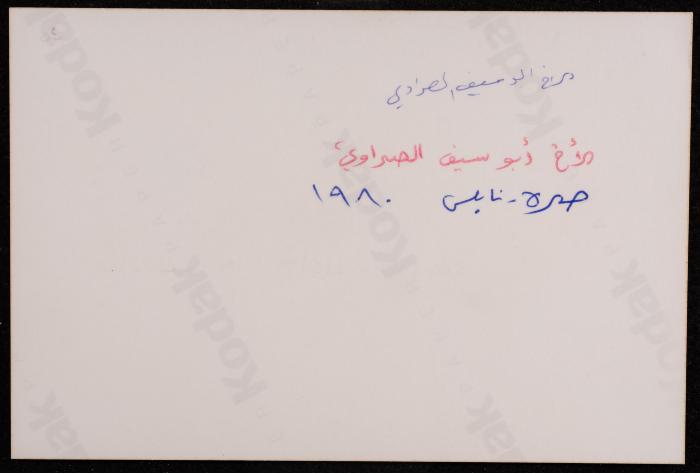 الأخ أبو سيف الصراوي
الأخ أبو سيف الصراوي
صرة - نابلس ١٩٨٠
Kodak
Kodak
Kodak
Kodak
Kodak
Kodak
Kodak